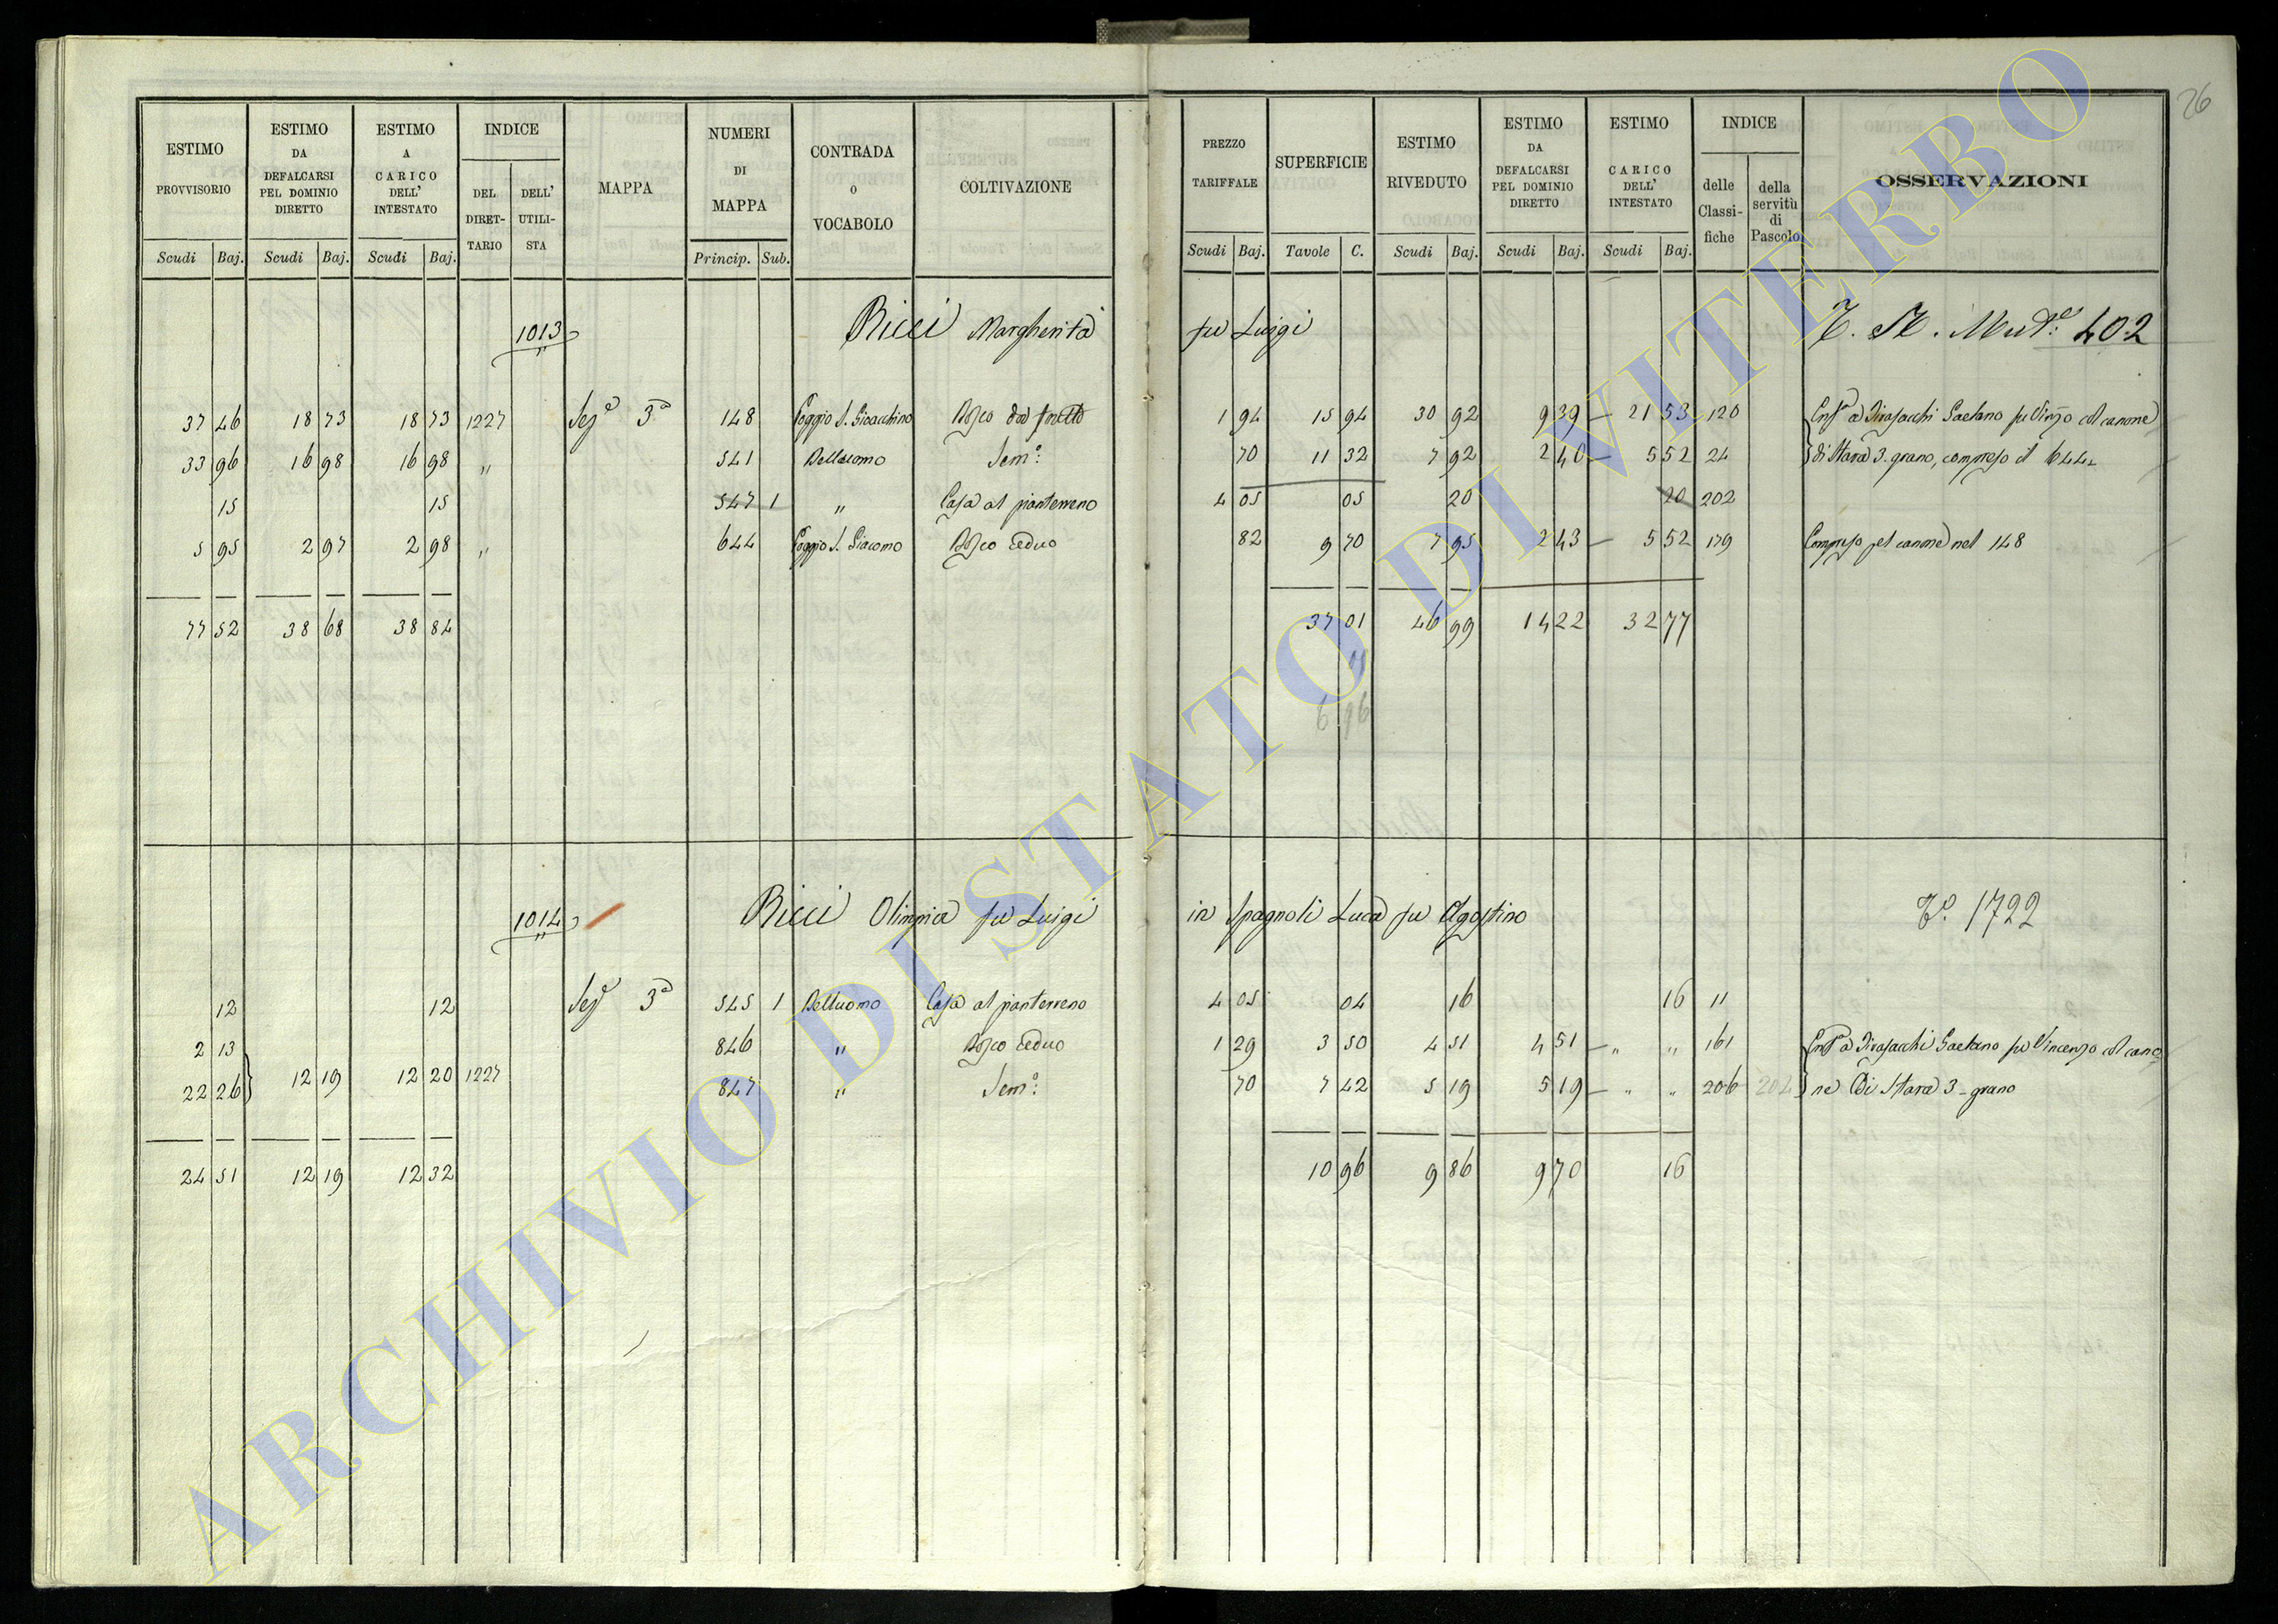 26
ESTIMO PROVVISORIO | ESTIMO DA DEFALCARSI PEL DOMINIO DIRETTO | ESTIMO A CARICO DELL' INTESTATO | INDICE DEL DIRETTARIO | DELL' UTILISTA | MAPPA | NUMERI DI MAPPA | CONTRADA O VOCABOLO | COLTIVAZIONE | PREZZO TARIFFALE | SUPERFICIE | ESTIMO RIVEDUTO | ESTIMO DA DEFALCARSI PEL DOMINIO DIRETTO | ESTIMO A CARICO DELL' INTESTATO | INDICE delle Classifiche | della servitù di Pascolo | OSSERVAZIONI
Scudi Baj. | Scudi Baj. | Scudi Baj. | Princip. Sub. | Scudi Baj. | Tavole C. | Scudi Baj. | Scudi Baj. | Scudi Baj.
1013 Ricci Margherita fu Luigi 402
37 46 | 18 73 | 18 73 | 1227 | Sez.e 3a | 148 | Poggio S. Gioacchino | Bosco | 1 94 | 15 94 | 30 92 | 9 39 | 21 53 | 120 | Gaetano col canone
33 96 | 16 98 | 16 98 | " | 541 | Belluomo | Sem.o | 70 | 11 32 | 7 92 | 2 40 | 5 52 | 24 | di Stara 3. grano, compreso il 644
15 | 15 | 547 1 | " | Casa al pianterreno | 4 05 | 05 | 20 | 20 | 202
5 95 | 2 97 | 2 98 | " | 644 | Poggio S. Giacomo | Bosco ceduo | 82 | 9 70 | 7 95 | 2 43 | 5 52 | 179 | Compreso pel canone nel 148
77 52 | 38 68 | 38 84 | 37 01 | 46 99 | 14 22 | 32 77
05
6 96
1014 Ricci Olimpia fu Luigi in Spagnoli Luca fu Agostino 1722
12 | 12 | Sez.e 3a | 545 1 | Belluomo | Casa al pianterreno | 4 05 | 04 | 16 | 16 | 11
2 13 | 846 | " | Bosco ceduo | 1 29 | 3 50 | 4 51 | 4 51 | " " | 161 | Gaetano fu Vincenzo col cano
22 26 | 12 19 | 12 20 | 1227 | 847 | " | Sem.o | 70 | 7 42 | 5 19 | 5 19 | " " | 206 | 202 | ne Di Stara 3 - grano
24 51 | 12 19 | 12 32 | 10 96 | 9 86 | 9 70 | 16
ARCHIVIO DI STATO DI VITERBO